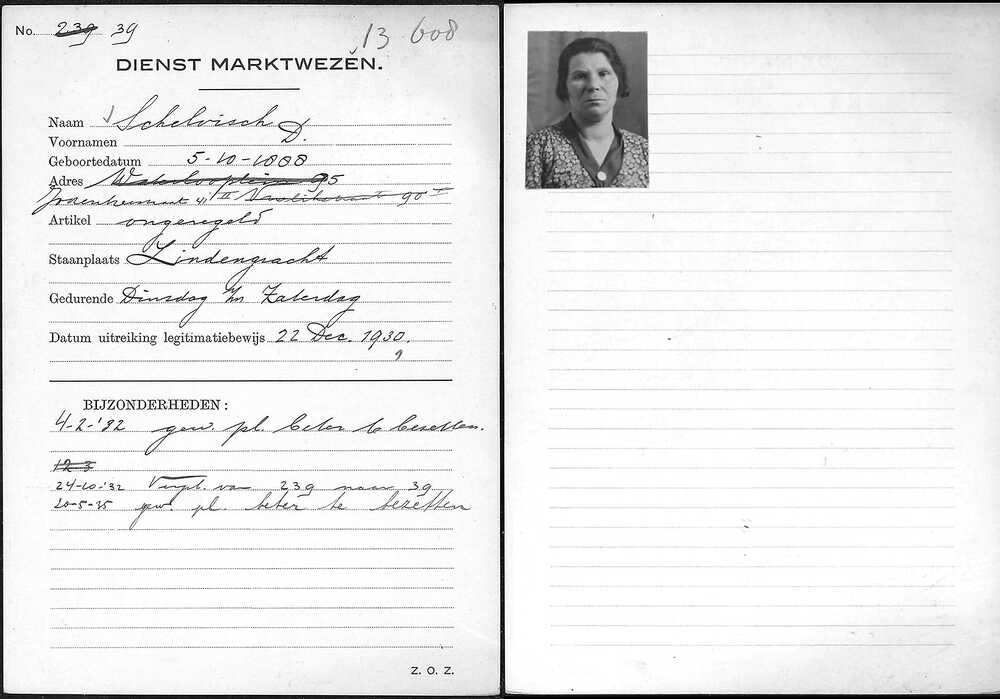 No. 239 39
13 608
DIENST MARKTWEZĚN.
Naam Schelvisch
Voornamen D.
Geboortedatum 5-10-1888
Adres Waterlooplein 95
41 II 90 I
Artikel ongeregeld
Staanplaats Lindengracht
Gedurende Dinsdag t/m Zaterdag
Datum uitreiking legitimatiebewijs 22 Dec. 1930.
BIJZONDERHEDEN:
4-2-'32 gew. pl. beter te bezetten.
12 3
24-10-'32 Verpl. van 239 naar 39
20-5-35 gew. pl. beter te bezetten
Z. O. Z.